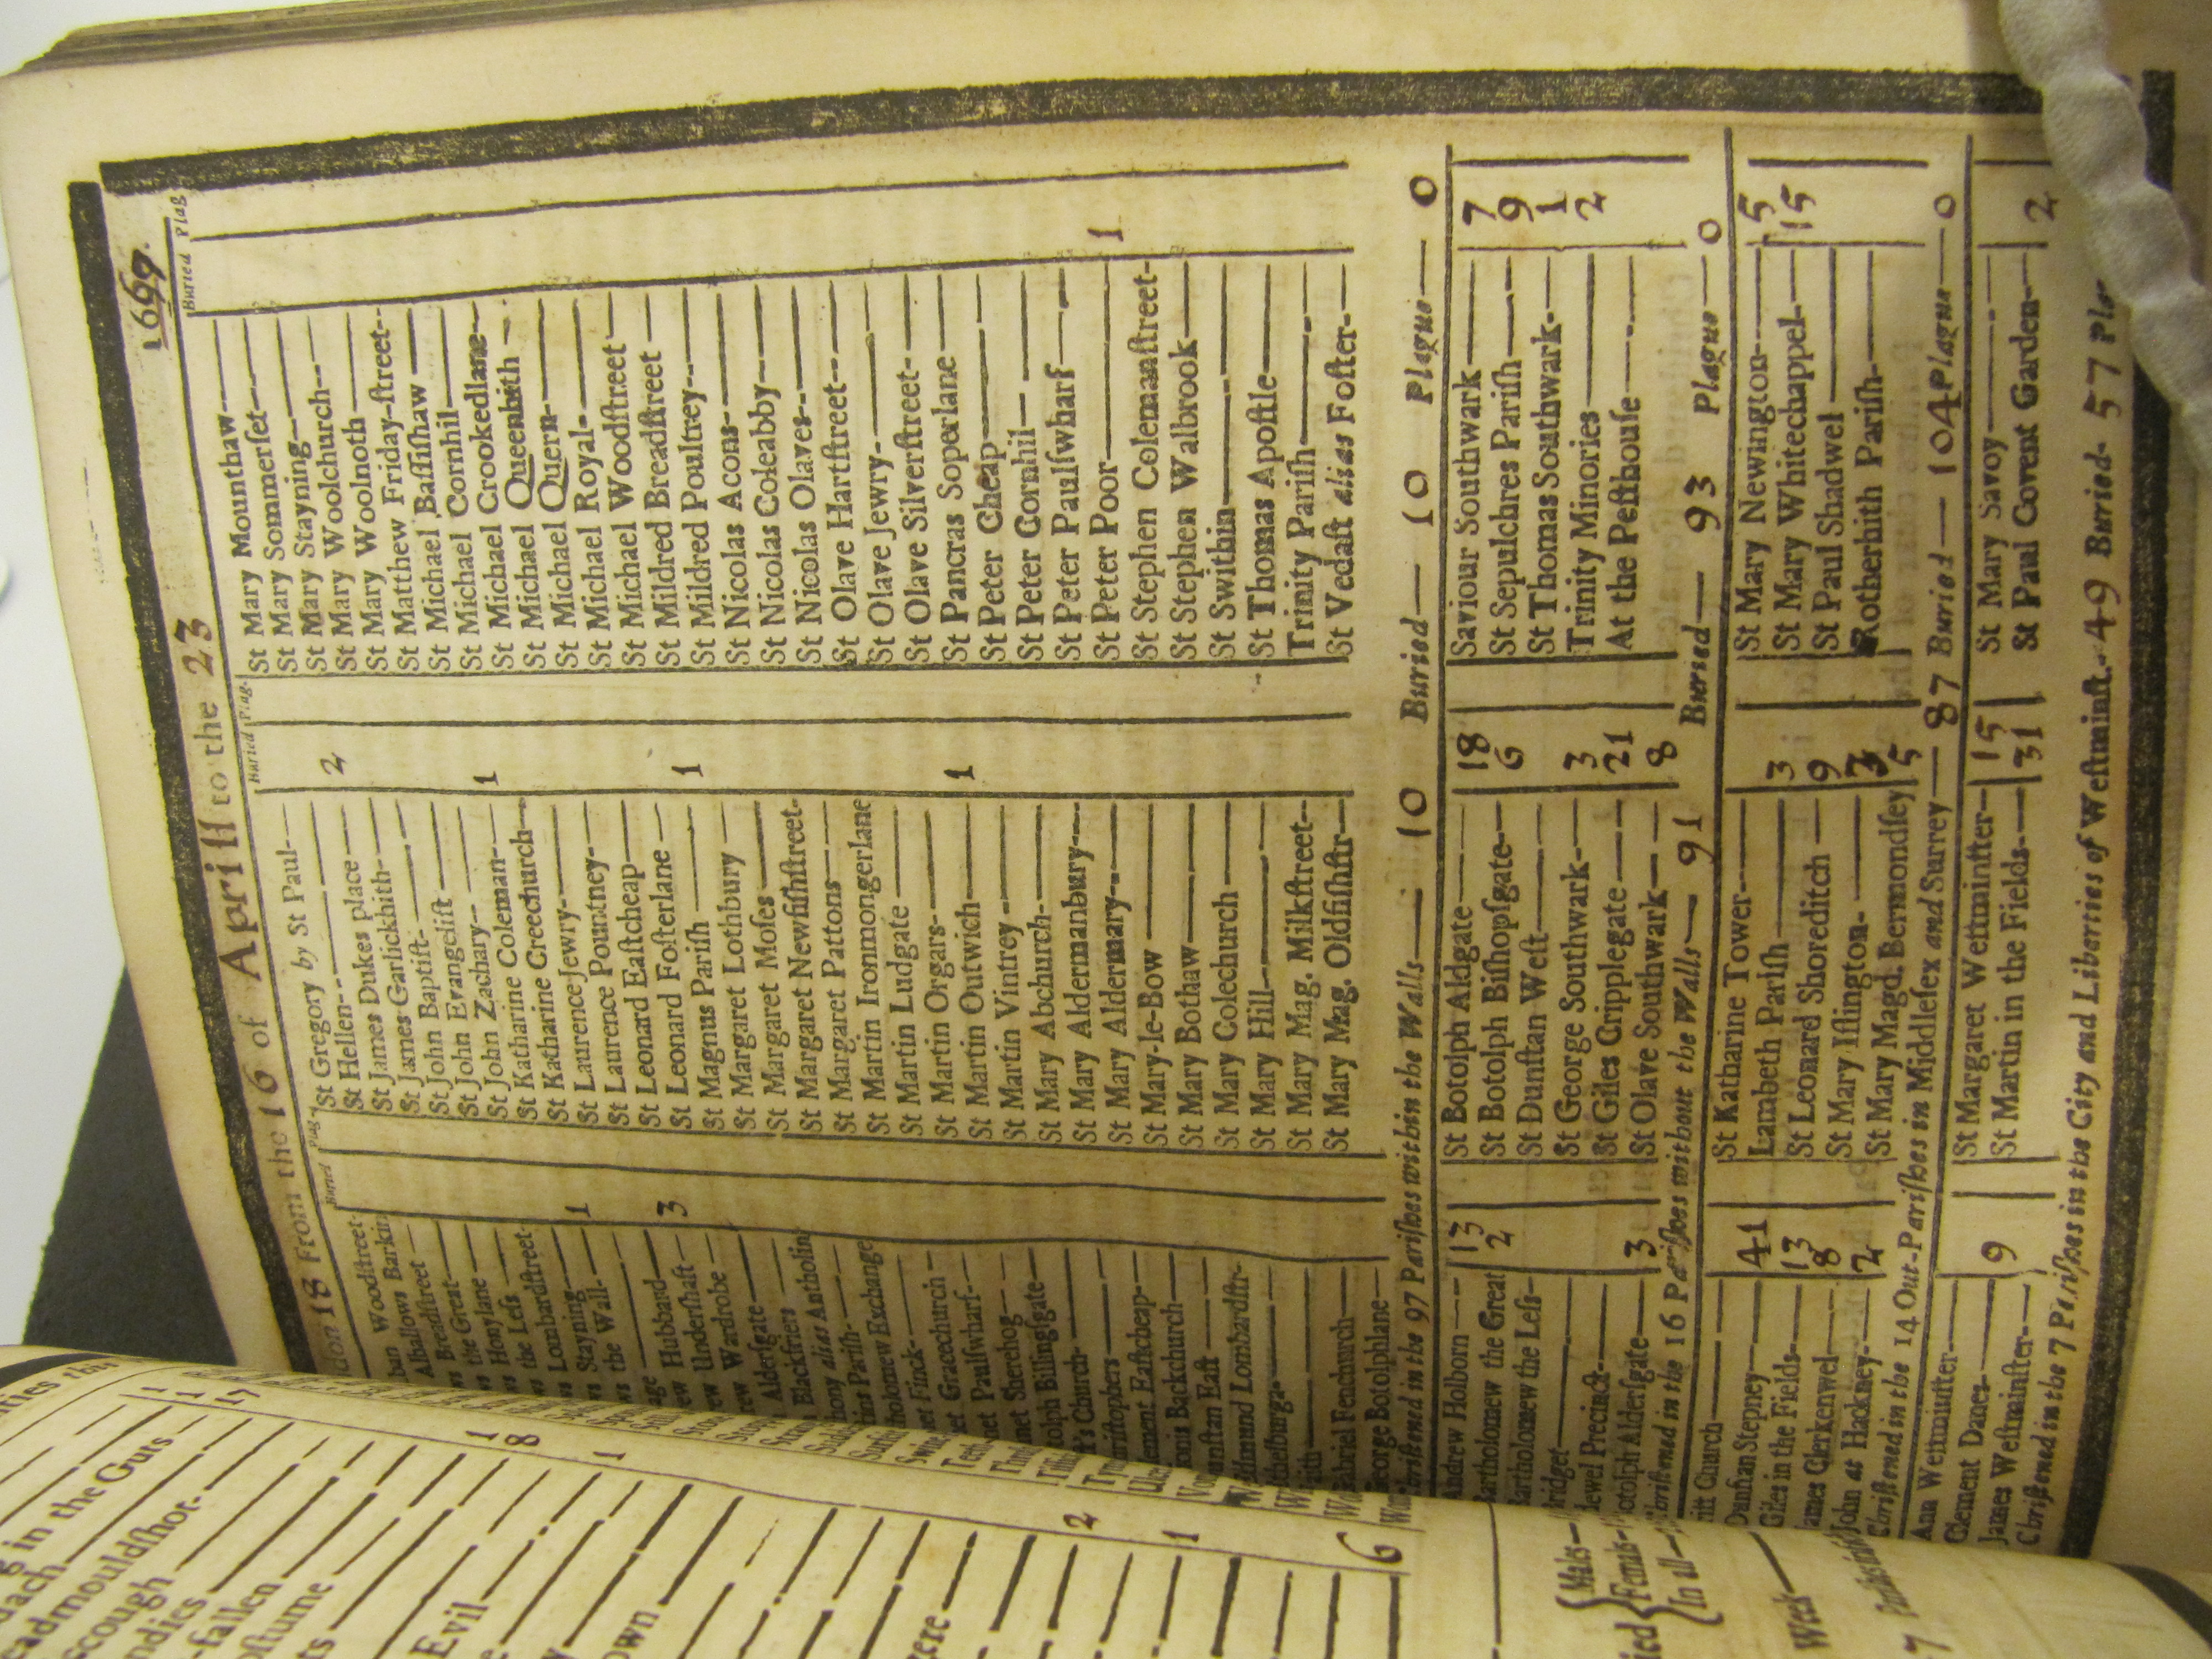 don 18 From the 16 of Aprill to the 23 1667.
Buried Plag.
Woodstreet-
ban Barkin
Alhallows Breadstreet
ws Great
the Honylane
ws the Less
ws Lombardstreet
ws Stayning 1
ws the Wall-
age
ew Hubbard 3
ew Undershaft
rew Wardrobe
Aldersgate
Blackfriers
hony alias Antholin
tins Parish-
tholomew Exchange
net Finck-
et Gracechurch
net Paulswharf-
net Sherehog
tolph Billingsgate
t's Church-
hristophers
lement Eastcheap-
ionis Backchurch
unstan East
dmund Lombardstr-
thelburga
ith
abriel Fenchurch
eorge Botolphlane
Buried Plag.
St Gregory by St Paul-
St Hellen- 2
St James Dukes place
St James Garlickhith-
St John Baptist-
St John Evangelist
St John Zachary- 1
St Katharine Coleman-
St Katharine Creechurch
St Laurence Jewry-
St Laurence Pountney-
St Leonard Eastcheap
St Leonard Fosterlane
St Magnus Parish 1
St Margaret Lothbury
St Margaret Moses
St Margaret Newfishstreet-
St Margaret Pattons
St Martin Ironmongerlane
St Martin Ludgate
St Martin Orgars-
St Martin Outwich 1
St Martin Vintrey
St Mary Abchurch-
St Mary Aldermanbury
St Mary Aldermary
St Mary-le-Bow
St Mary Bothaw
St Mary Colechurch
St Mary Hill
St Mary Mag. Milkstreet-
St Mary Mag. Oldfishstr
Buried Plag
St Mary Mounthaw
St Mary Sommerset
St Mary Stayning
St Mary Woolchurch
St Mary Woolnoth
St Matthew Friday-street-
St Michael Bassishaw
St Michael Cornhil
St Michael Crookedlane
St Michael Queenhith
St Michael Quern
St Michael Royal-
St Michael Woodstreet
St Mildred Breadstreet
St Mildred Poultrey
St Nicolas Acons-
St Nicolas Coleabby
St Nicolas Olaves
St Olave Hartstreet
St Olave Jewry-
St Olave Silverstreet-
St Pancras Soperlane
St Peter Cheap
St Peter Cornhil
St Peter Paulswharf
St Peter Poor 1
St Stephen Colemanstreet-
St Stephen Walbrook
St Swithin
St Thomas Apostle
Trinity Parish
St Vedast alias Foster
Christened in the 97 Parishes within the Walls 10 Buried 10 Plague 0
Andrew Holborn 13
Bartholomew the Great 2
Bartholomew the Less-
Bridget
dewel Precinct
Botolph Aldersgate 3
St Botolph Aldgate 18
St Botolph Bishopsgate 6
St Dunstan West
St George Southwark- 3
St Giles Cripplegate 21
St Olave Southwark 8
Saviour Southwark 7
St Sepulchres Parish 9
St Thomas Southwark- 1
Trinity Minories 2
At the Pesthouse
Christened in the 16 Parishes without the Walls 91 Buried 93 Plague 0
rist Church
Dunstan Stepney 41
Giles in the Fields 13
James Clerkenwel 8
John at Hackney 2
St Katharine Tower 3
Lambeth Parish 9
St Leonard Shoreditch
St Mary Islington-
St Mary Magd. Bermondsey 5
St Mary Newington 5
St Mary Whitechappel 15
St Paul Shadwel
Rotherhith Parish
Christened in the 14 Out-Parishes in Middlesex and Surrey 87 Buried 104 Plague 0
Ann Westminster
Clement Danes 9
James Westminster
St Margaret Westminster 15
St Martin in the Fields 31
St Mary Savoy
St Paul Covent Garden 2
Christened in the 7 Parishes in the City and Liberties of Westminst. 49 Buried 57
g in the Guts 1
dach 1
eadmouldshot- 17
scough
ndies
-fallen
ostume 1
ts 8
Evil 1
own
ere
2
1
6
Males
Femals
In all
Week